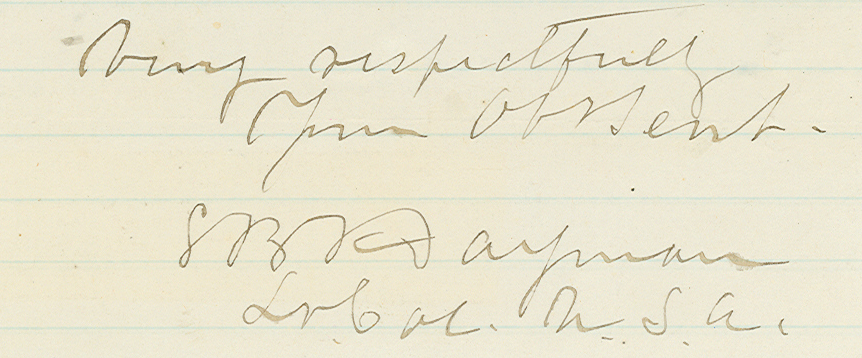 Very respectfully
Your Obt Servt.
S B Hayman
Lt. Col. U.S.A.